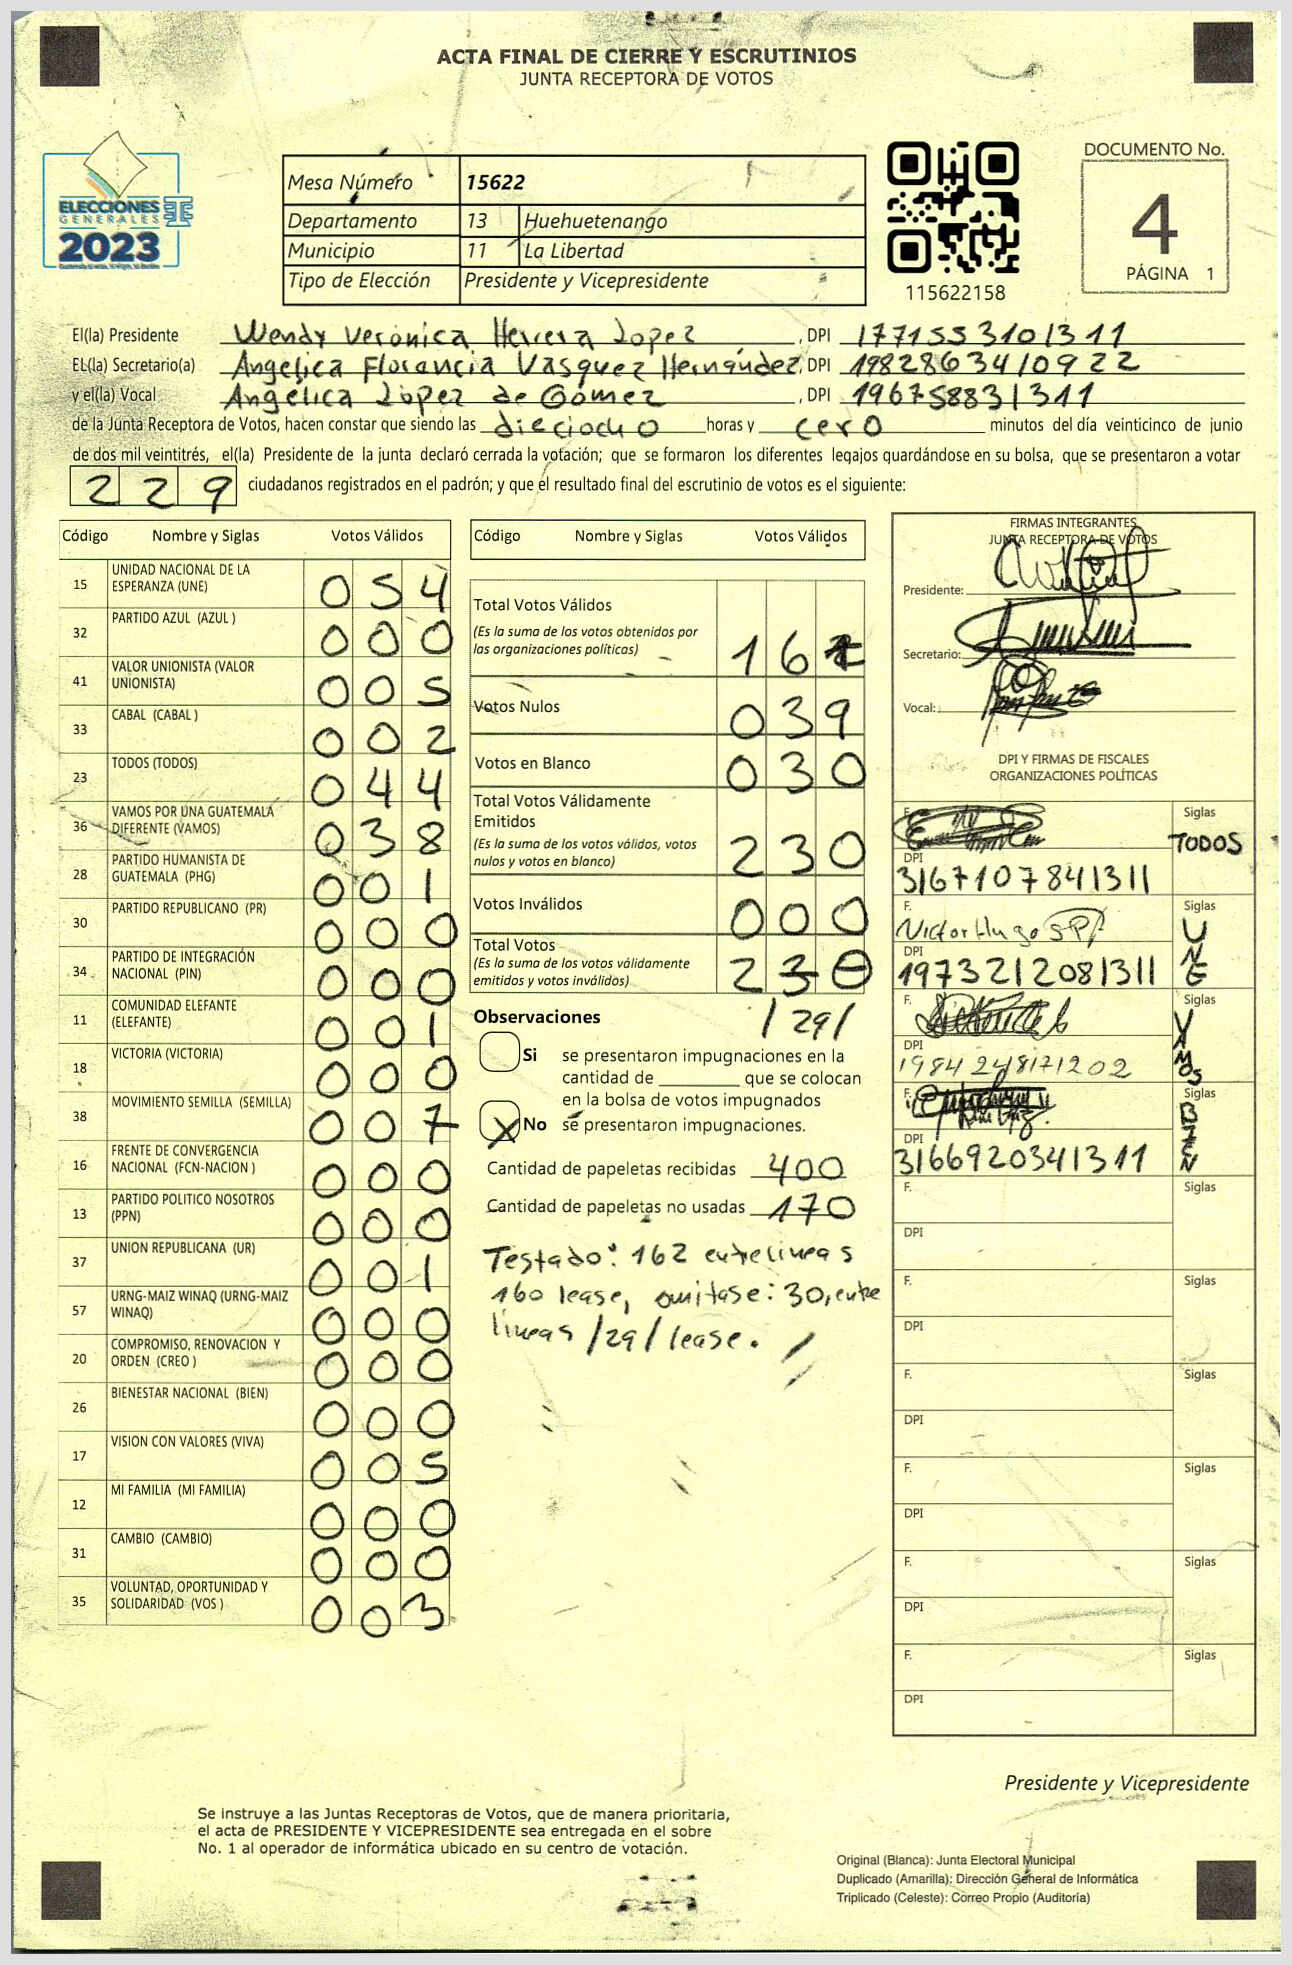 ACTA FINAL DE CIERRE Y ESCRUTINIOS
JUNTA RECEPTORA DE VOTOS
ELECCIONES
GENERALES
2023
TSE
Mesa Número 15622
Departamento 13 Huehuetenango
Municipio 11 La Libertad
Tipo de Elección Presidente y Vicepresidente
115622158
DOCUMENTO No.
4
PÁGINA 1
El(la) Presidente Wendy Verónica Herrera Lopez, DPI 1771553101311
EL(la) Secretario(a) Angelica Florencia Vasquez Hernández, DPI 1982863410922
y el(la) Vocal Angélica López de Gómez, DPI 1967588311311
de la Junta Receptora de Votos, hacen constar que siendo las dieciocho horas y cero minutos del día veinticinco de junio
de dos mil veintitrés, el(la) Presidente de la junta declaró cerrada la votación; que se formaron los diferentes legajos quardándose en su bolsa, que se presentaron a votar
229 ciudadanos registrados en el padrón; y que el resultado final del escrutinio de votos es el siguiente:
Código Nombre y Siglas Votos Válidos
15 UNIDAD NACIONAL DE LA ESPERANZA (UNE) 054
32 PARTIDO AZUL (AZUL ) 000
41 VALOR UNIONISTA (VALOR UNIONISTA) 005
33 CABAL (CABAL ) 002
23 TODOS (TODOS) 044
36 VAMOS POR UNA GUATEMALA DIFERENTE (VAMOS) 038
28 PARTIDO HUMANISTA DE GUATEMALA (PHG) 001
30 PARTIDO REPUBLICANO (PR) 000
34 PARTIDO DE INTEGRACIÓN NACIONAL (PIN) 000
11 COMUNIDAD ELEFANTE (ELEFANTE) 001
18 VICTORIA (VICTORIA) 000
38 MOVIMIENTO SEMILLA (SEMILLA) 007
16 FRENTE DE CONVERGENCIA NACIONAL (FCN-NACION ) 000
13 PARTIDO POLITICO NOSOTROS (PPN) 000
37 UNION REPUBLICANA (UR) 001
57 URNG-MAIZ WINAQ (URNG-MAIZ WINAQ) 000
20 COMPROMISO, RENOVACION Y ORDEN (CREO ) 000
26 BIENESTAR NACIONAL (BIEN) 000
17 VISION CON VALORES (VIVA) 005
12 MI FAMILIA (MI FAMILIA) 000
31 CAMBIO (CAMBIO) 000
35 VOLUNTAD, OPORTUNIDAD Y SOLIDARIDAD (VOS ) 003
Código Nombre y Siglas Votos Válidos
Total Votos Válidos
(Es la suma de los votos obtenidos por
las organizaciones políticas) 16
Votos Nulos 039
Votos en Blanco 030
Total Votos Válidamente
Emitidos
(Es la suma de los votos válidos, votos
nulos y votos en blanco) 230
Votos Inválidos 000
Total Votos
(Es la suma de los votos válidamente
emitidos y votos inválidos) 230
/29/
Observaciones
Si se presentaron impugnaciones en la
cantidad de ________ que se colocan
en la bolsa de votos impugnados
No se presentaron impugnaciones.
Cantidad de papeletas recibidas 400
Cantidad de papeletas no usadas 170
Testado: 162 entrelineas
160 lease, omitase: 30, entre
lineas /29/ lease.
FIRMAS INTEGRANTES
JUNTA RECEPTORA DE VOTOS
Presidente:
Secretario:
Vocal:
DPI Y FIRMAS DE FISCALES
ORGANIZACIONES POLÍTICAS
F. Siglas
TODOS
DPI
3167107841311
F. Victor Hugo Siglas
UNE
DPI
1973212081311
F. Siglas
VAMOS
DPI
1984248171202
F. Siglas
BIEN
DPI
3166920341311
F. Siglas
DPI
F. Siglas
DPI
F. Siglas
DPI
F. Siglas
DPI
F. Siglas
DPI
F. Siglas
DPI
Presidente y Vicepresidente
Se instruye a las Juntas Receptoras de Votos, que de manera prioritaria,
el acta de PRESIDENTE Y VICEPRESIDENTE sea entregada en el sobre
No. 1 al operador de informática ubicado en su centro de votación.
Original (Blanca): Junta Electoral Municipal
Duplicado (Amarilla): Dirección General de Informática
Triplicado (Celeste): Correo Propio (Auditoría)